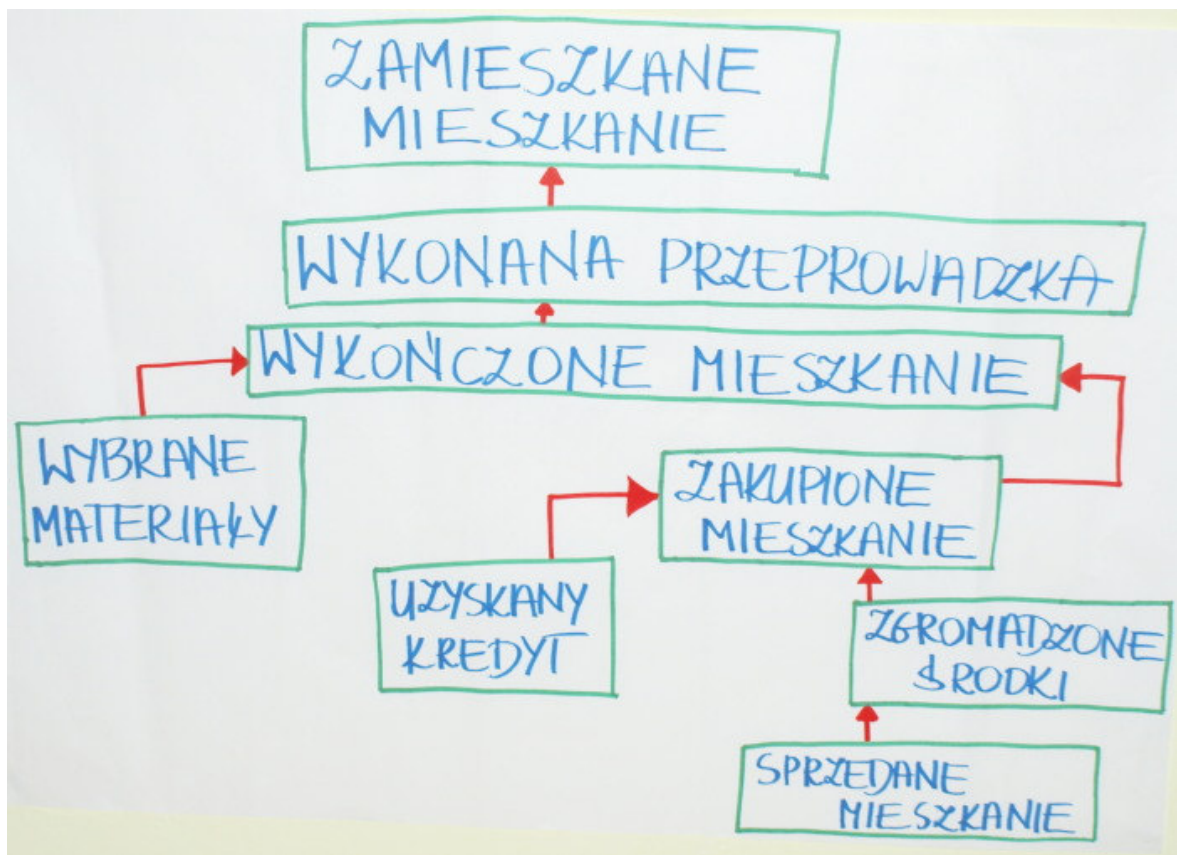 ZAMIESZKANE
MIESZKANIE
WYKONANA PRZEPROWADZKA
WYKOŃCZONE MIESZKANIE
WYBRANE
MATERIAŁY
ZAKUPIONE
MIESZKANIE
UZYSKANY
KREDYT
ZGROMADZONE
ŚRODKI
SPRZEDANE
MIESZKANIE